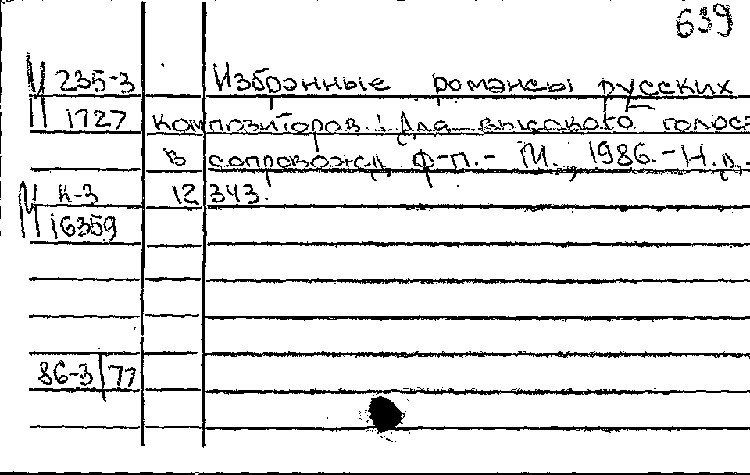 639
М 235-3 Избранные романсы русских
1727 композиторов: Для высокого голоса
в сопровожд. ф-п. - М., 1986. - Н.д.
М К-3 12343.
16359
86-3/77